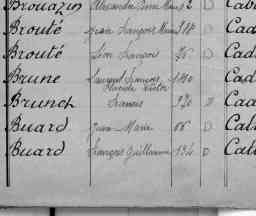 Brouazin Alexandre Pierre Marie 2 D Cab
Brouté Jean François Marie 318 D Cad
Brouté Léon François 76 D Cad
Brune Laurent François 180 D Cad
Placide Victor
Brunet Francois 920 D Cad
Buard Jean Marie 66 D Cal
Buard François Guillaume 134 D Cal